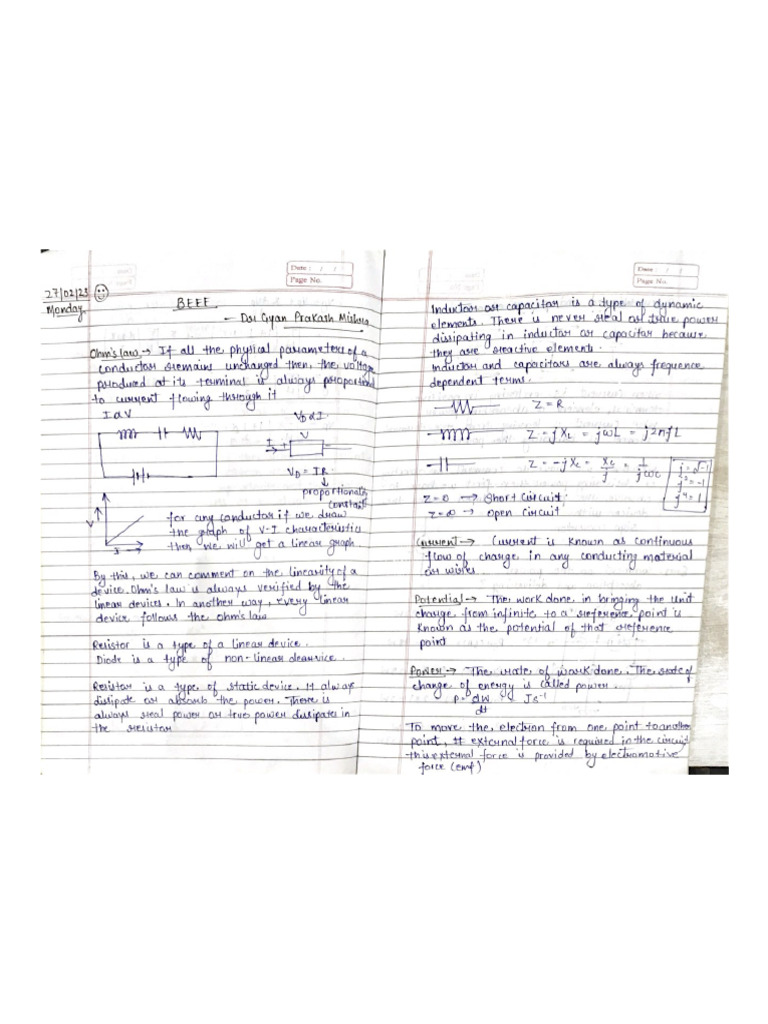 Date : / /
Page No.
27/02/23
Monday
BEEE
- Dr Gyan Prakash Mishra
Ohm's law → If all the physical parameters of a
conductor remains unchanged then, the voltage
produced at its terminal is always proportional
to current flowing through it
I α V
V_D α I
I
V
V_D = IR
proportionality
constant
V
I
for any conductor if we draw
the graph of V-I characteristics
then, we will get a linear graph
By this, we can comment on the linearity of a
device. Ohm's law is always verified by the
linear devices. In another way, every linear
device follows the ohm's law
Resistor is a type of a linear device.
Diode is a type of non-linear dearvice.
Resistor is a type of static device. It always
dissipate or absorb the power. There is
always real power or true power dissipate in
the resistor
Date : / /
Page No.
Inductor or capacitor is a type of dynamic
elements. There is never real or true power
dissipating in inductor or capacitor because
they are reactive elements.
Inductor and capacitors are always frequence
dependent terms.
Z = R
Z = jX_L = jωL = j2πfL
Z = -jX_C = X_C/j = 1/jωC
j = √-1
j² = -1
j⁴ = 1
Z = 0 → Short circuit
Z = ∞ → Open circuit
Current → Current is known as continuous
flow of charge in any conducting material
or wires
Potential → The work done in bringing the unit
charge from infinite to a reference point is
known as the potential of that reference
point
Power → The rate of work done. The rate of
change of energy is called power.
P = dW/dt = Js⁻¹
To move the, electron from one point to another
point, # external force is required in the circuit
this external force is provided by electromotive
force (emf)